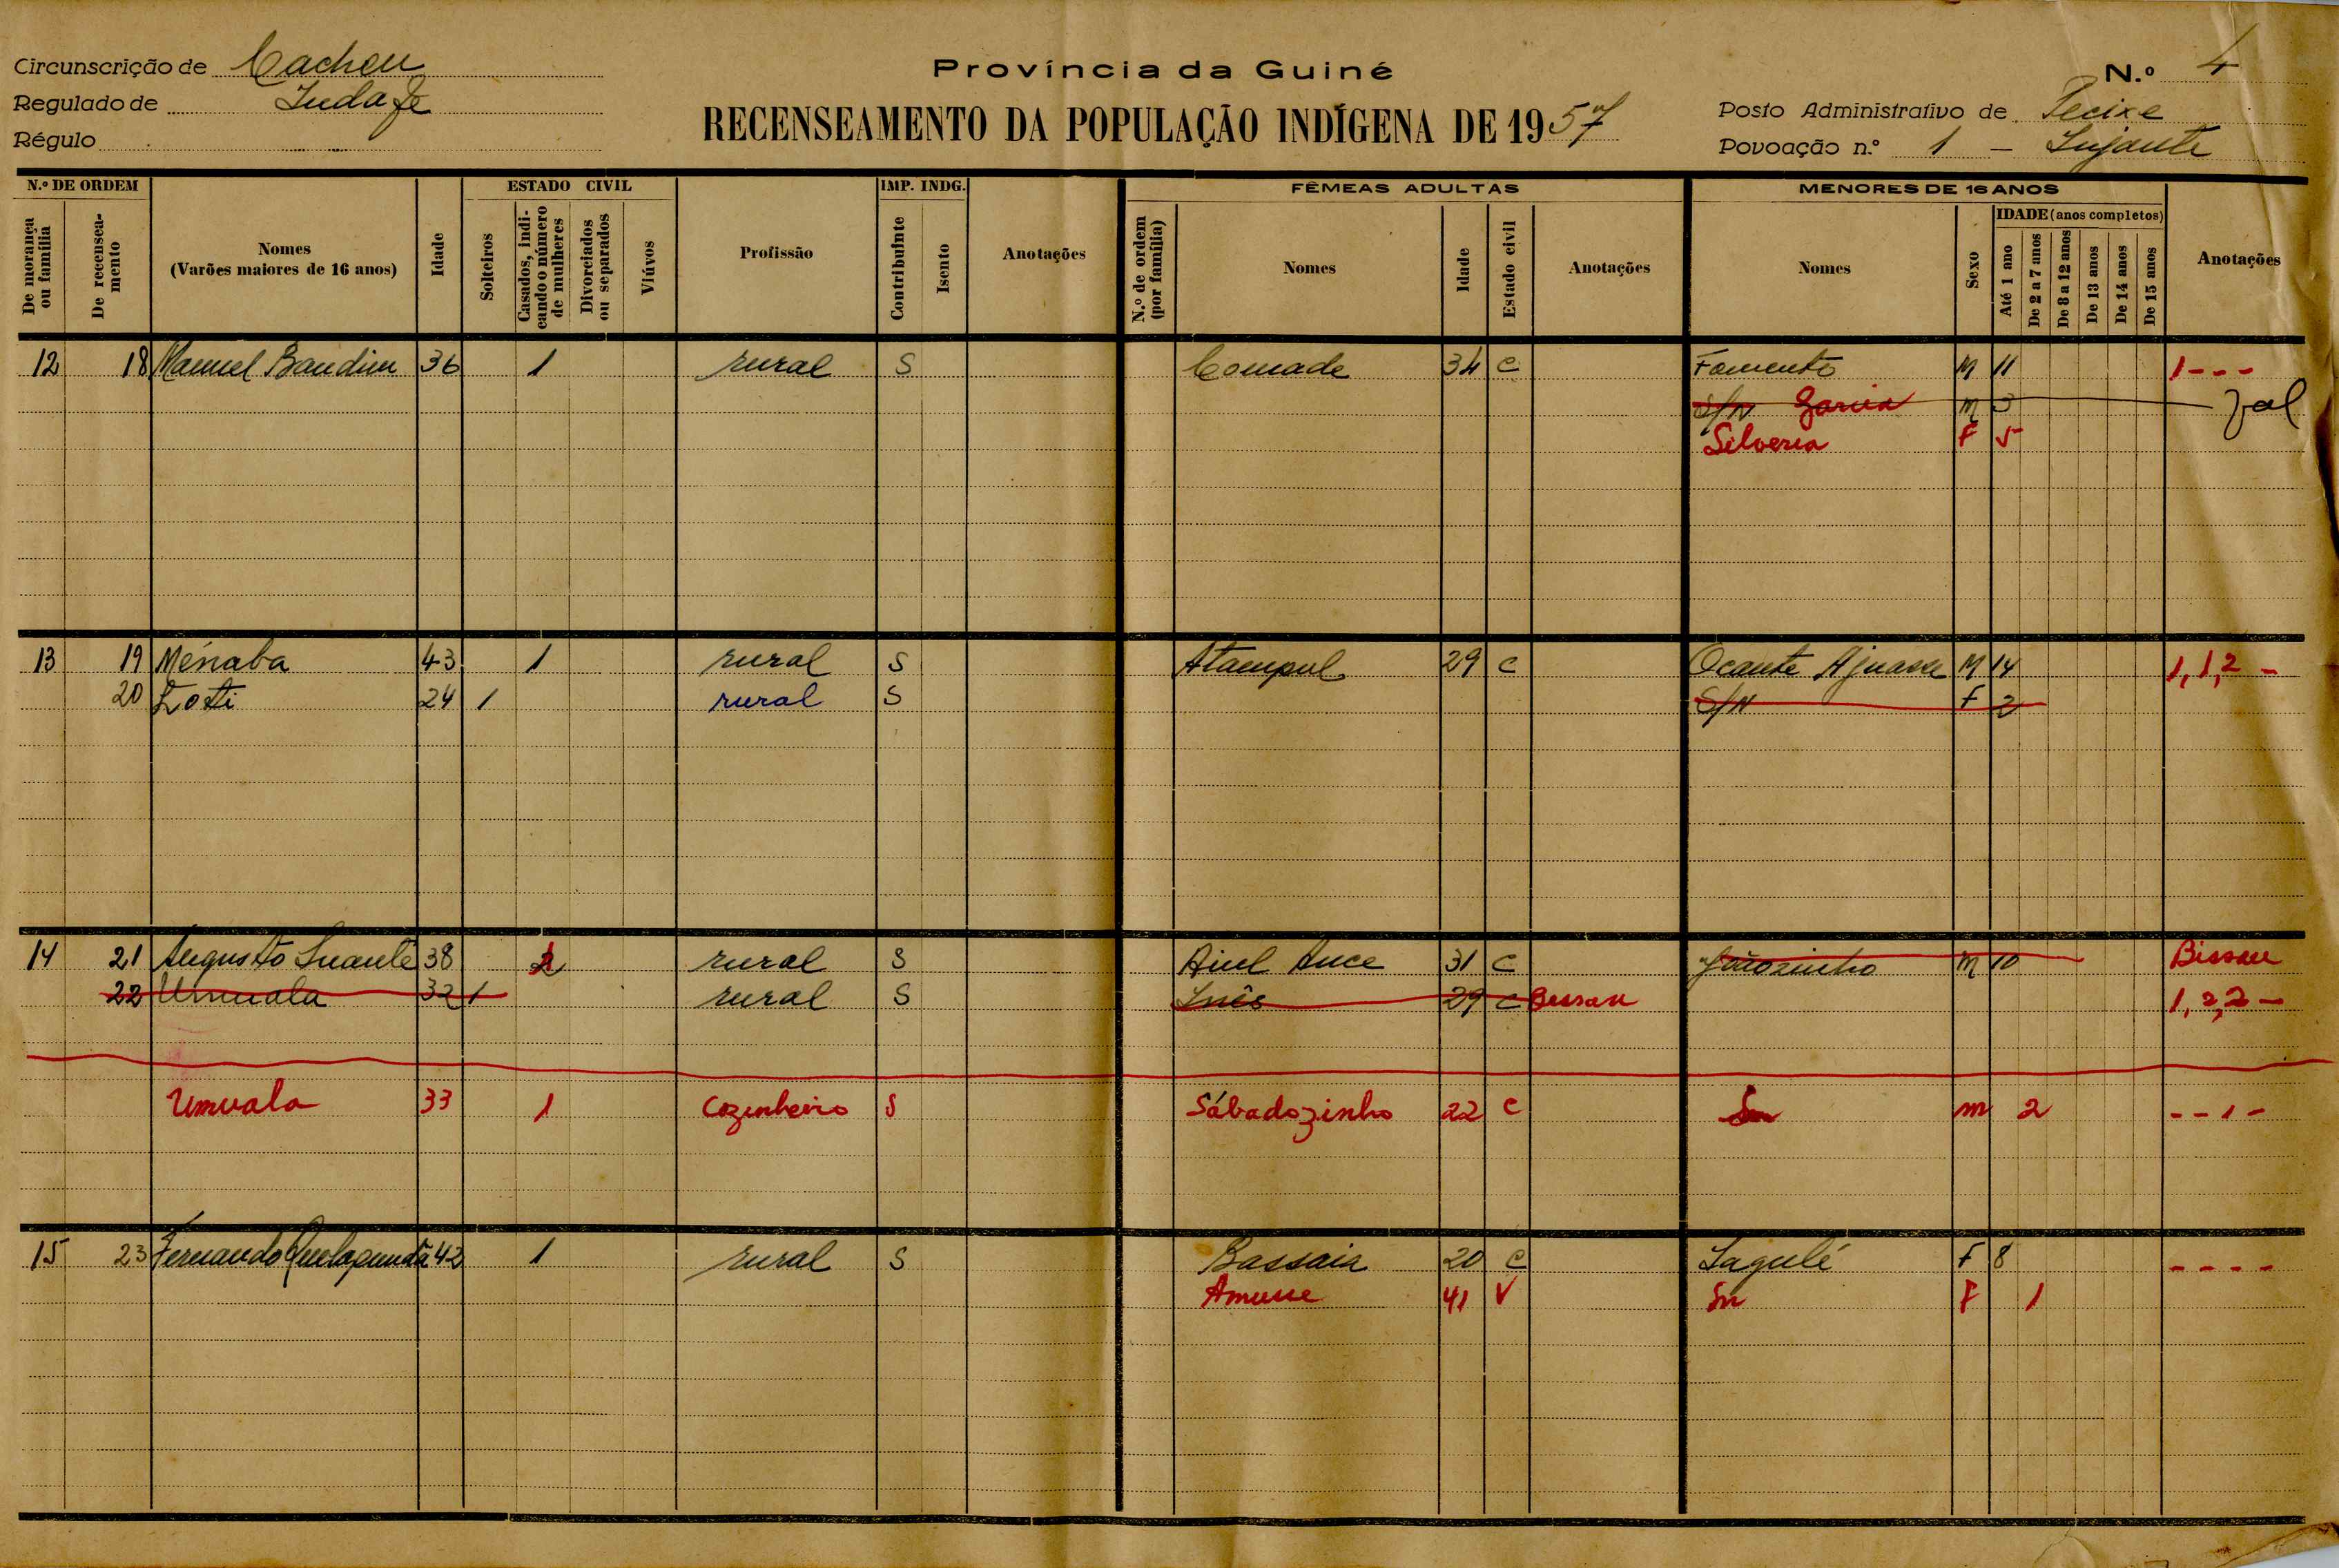 Circunscrição de Cacheu
Regulado de Indafe
Régulo
Província da Guiné
RECENSEAMENTO DA POPULAÇÃO INDÍGENA DE 1957
N.º 4
Posto Administrativo de Pecixe
Povoação n.º 1 -
N.º DE ORDEM
ESTADO CIVIL
IMP. INDG.
FÊMEAS ADULTAS
MENORES DE 16 ANOS
De morança ou família
De recenseamento
Nomes
(Varões maiores de 16 anos)
Idade
Solteiros
Casados, indicando o número de mulheres
Divorciados ou separados
Viúvos
Profissão
Contribuinte
Isento
Anotações
N.º de ordem (por família)
Nomes
Idade
Estado civil
Anotações
Nomes
Sexo
IDADE (anos completos)
Até 1 ano
De 2 a 7 anos
De 8 a 12 anos
De 13 anos
De 14 anos
De 15 anos
Anotações
12 18 Manuel Bandim 36 1 rural S Comade 34 C Fomento M 11 1 - - -
S/N Garcia M 3
Silveria F 5
13 19 Ménaba 43 1 rural S Atampul 29 C Ocante Ajuasse M 14 1, 1, 2 -
20 Loti 24 1 rural S S/N F 2
14 21 Augusto 38 rural S 31 C Joãosinho M 10 Bissau
22 Umuala 32 1 rural S Inês 29 C Bissau 1, 2, 2 -
Umuala 33 1 Cozinheiro S Sábadozinho 22 C Sn m 2 - - 1 -
15 23 Fernando 42 1 rural S Bassaia 20 C Sagulé F 8 - - - -
Amusse 41 V Sn F 1